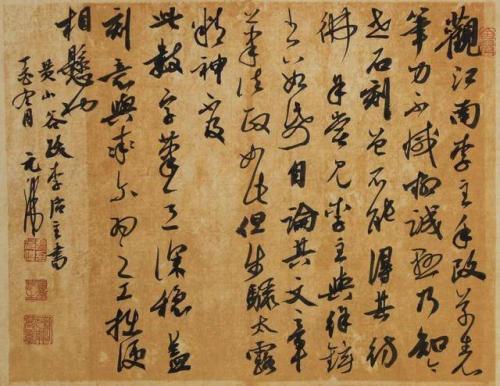 觀江南李主手改草表
筆力不減柳誠懸乃知今
世石刻曾不能得其彷
彿余嘗見李主與徐鉉
書數紙自論其文章
筆法政如此但步驟太露
精神不及
此數字筆意深穩蓋
刻意與率爾為之工拙便
相懸也
黃山谷跋李后主書
丁亥九月 元